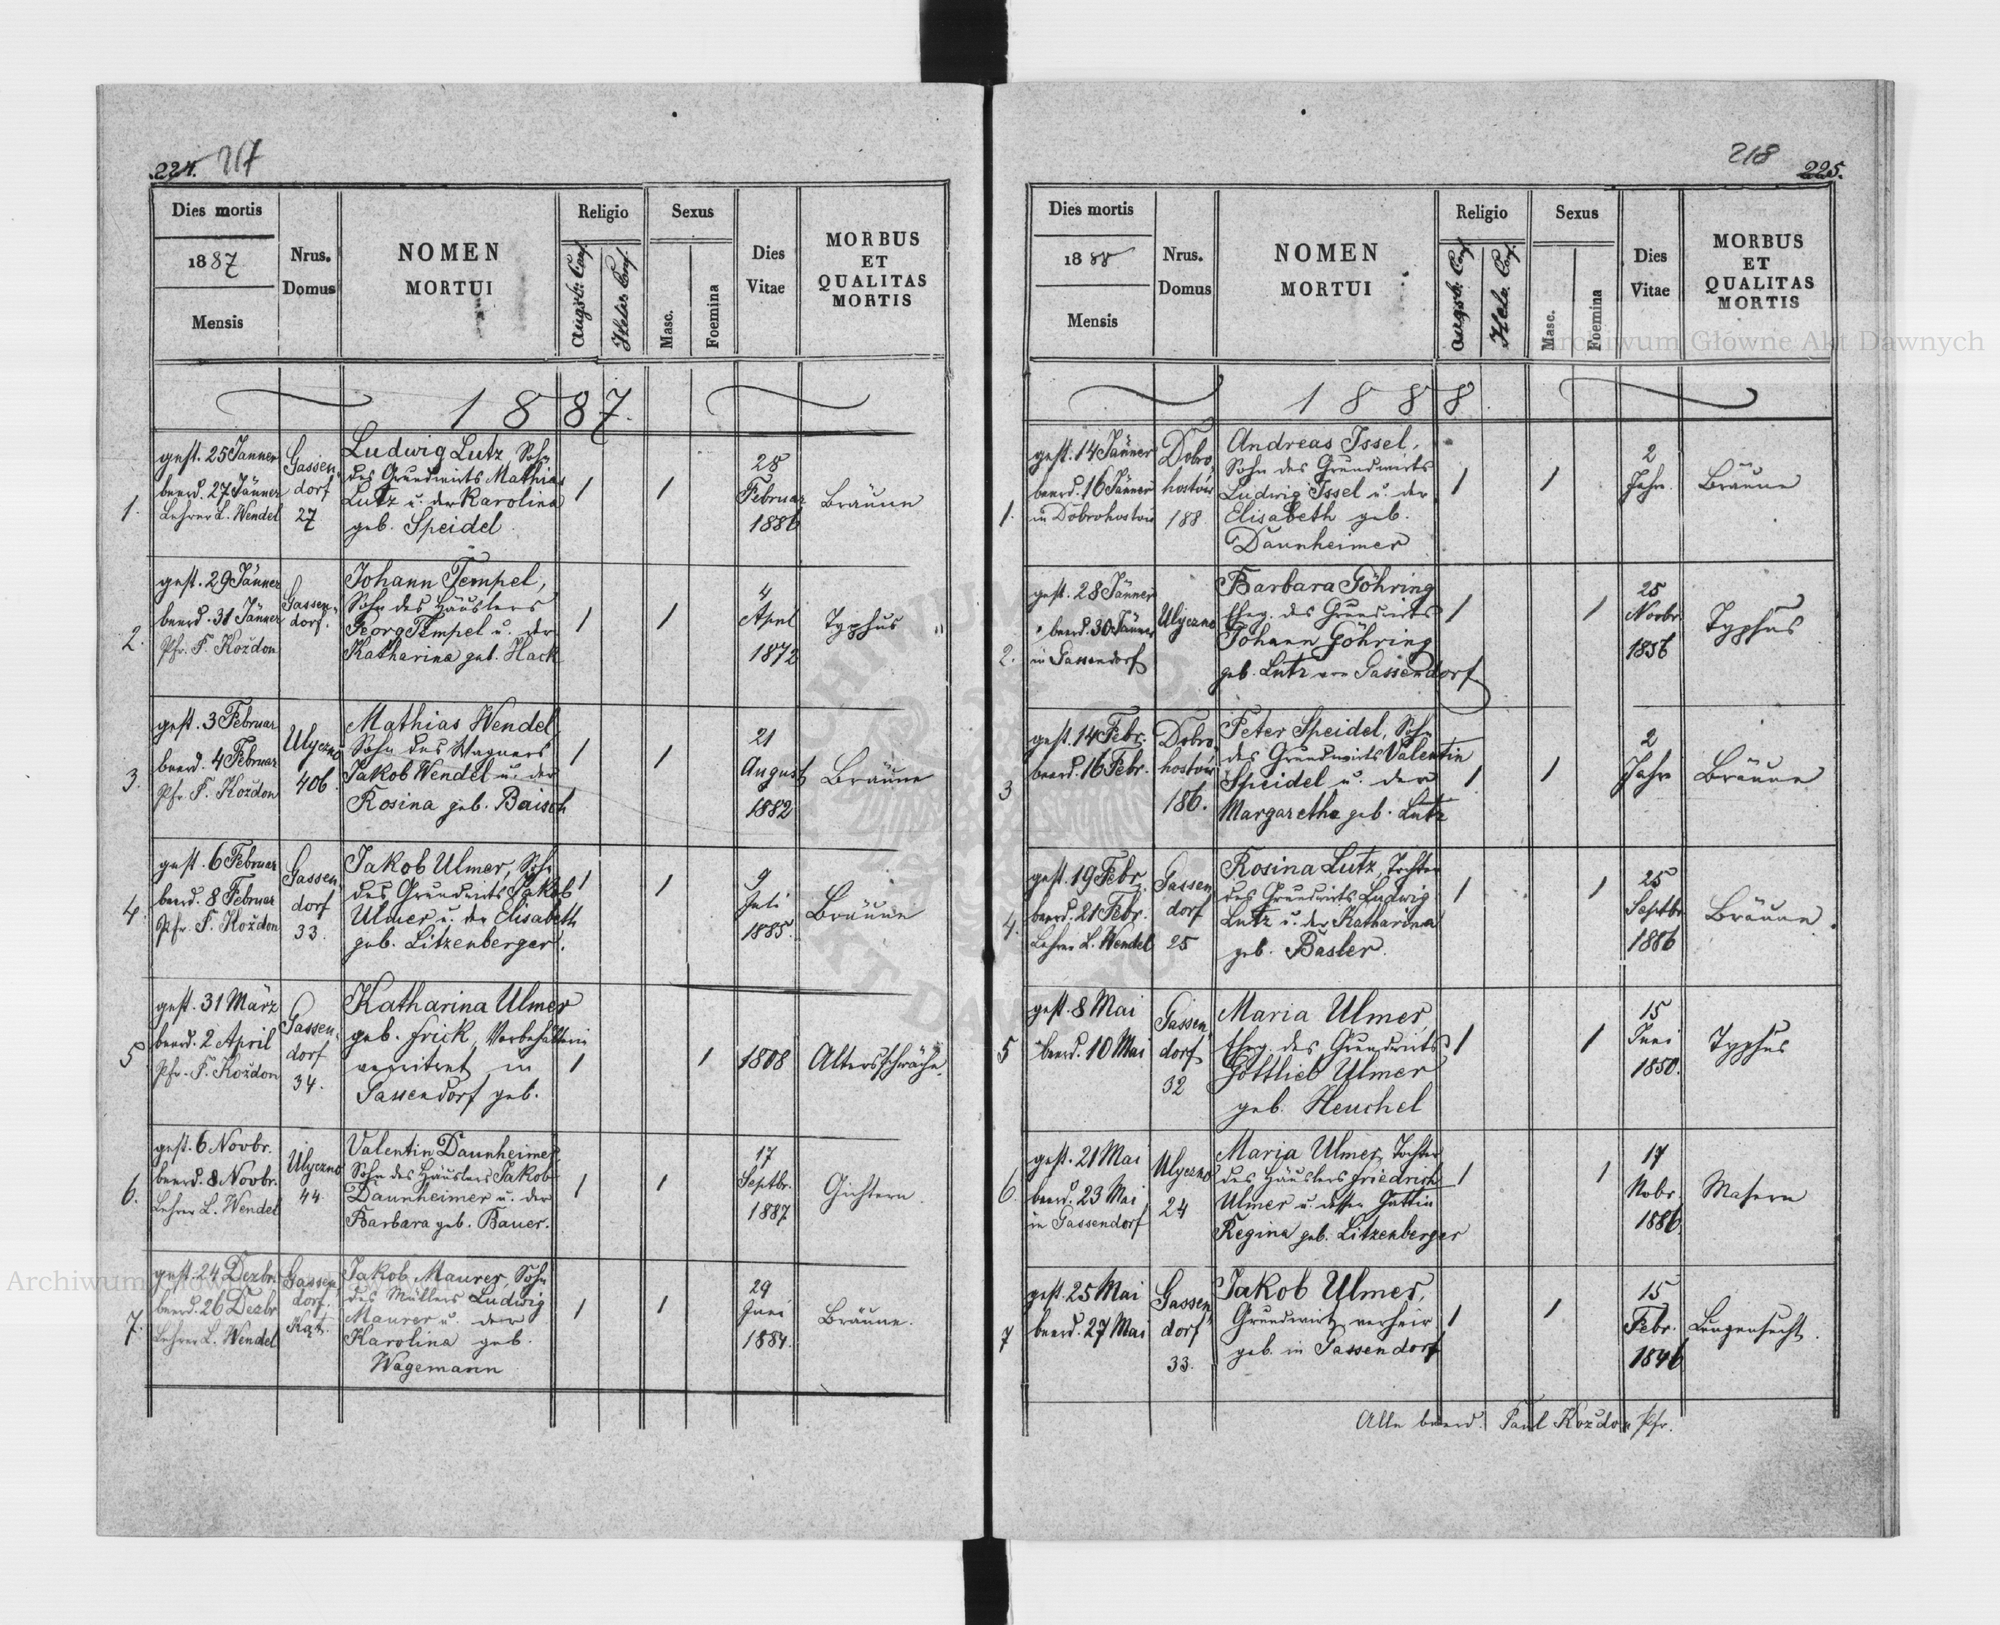 224. 217
Dies mortis
1887
Mensis
Nrus.
Domus
NOMEN
MORTUI
Religio
Augsb. Conf.
Helv. Conf.
Sexus
Masc.
Foemina
Dies
Vitae
MORBUS
ET
QUALITAS
MORTIS
1887.
1.
gest. 25 Jänner
beerd. 27 Jänner
Lehrer L. Wendel
Gassen-
dorf
27
Ludwig Lutz, Sohn
des Grundwirts Mathias
Lutz u. der Karolina
geb. Speidel
1
1
28
Februar
1886
Bräune
2.
gest. 29 Jänner
beerd. 31 Jänner
Pfr. F. Kozdon
Gassen-
dorf.
Johann Tempel,
Sohn des Häuslers
Georg Tempel u. der
Katharina geb. Hack
1
1
4
April
1872
Typhus
3.
gest. 3 Februar
beerd. 4 Februar
Pfr. F. Kozdon
Ulyczno
406.
Mathias Wendel
Sohn des Wagners
Jakob Wendel u. der
Rosina geb. Baisch
1
1
21
August
1882
Bräune
4.
gest. 6 Februar
beerd. 8 Februar
Pfr. F. Kozdon
Gassen-
dorf
33.
Jakob Ulmer, Sohn
des Grundwirts Jakob
Ulmer u. der Elisabeth
geb. Litzenberger.
1
1
9
Juli
1885.
Bräune
5.
gest. 31 März
beerd. 2 April
Pfr. F. Kozdon
Gassen-
dorf
34.
Katharina Ulmer
geb. Frick, Vorbehälterin
verwitwet, in
Gassendorf geb.
1
1
1808
Altersschwäche.
6.
gest. 6 Novbr.
beerd. 8 Novbr.
Lehrer L. Wendel
Ulyczno
44.
Valentin Daunheimer
Sohn des Häuslers Jakob
Daunheimer u. der
Barbara geb. Bauer.
1
1
17
Septbr.
1887
Gichtern.
7.
gest. 24 Dezbr.
beerd. 26 Dezbr
Lehrer L. Wendel
Gassen-
dorf.
Kat.
Jakob Maurer, Sohn
des Müllers Ludwig
Maurer u. der
Karolina geb.
Wagemann
1
1
29
Juni
1884.
Bräune.
218 225.
Dies mortis
1888
Mensis
Nrus.
Domus
NOMEN
MORTUI
Religio
Augsb. Conf.
Helv. Conf.
Sexus
Masc.
Foemina
Dies
Vitae
MORBUS
ET
QUALITAS
MORTIS
1888
1.
gest. 14 Jänner
beerd. 16 Jänner
in Dobrohostów
Dobro-
hostów
188.
Andreas Issel,
Sohn des Grundwirts
Ludwig Issel u. der
Elisabeth geb.
Daunheimer
1
1
2
Jahr.
Bräune
2.
gest. 28 Jänner
beerd. 30 Jänner
in Gassendorf
Ulyczno
Barbara Göhring
Eheg. des Grundwirts
Johann Göhring
geb. Lutz von Gassendorf
1
1
25
Novbr.
1856
Typhus
3
gest. 14 Febr.
beerd. 16 Febr.
Dobro-
hostów
186.
Peter Speidel, Sohn
des Grundwirts Valentin
Speidel u. der
Margaretha geb. Lutz
1
1
2
Jahr
Bräune
4.
gest. 19 Febr.
beerd. 21 Febr.
Lehrer L. Wendel
Gassen-
dorf
25
Rosina Lutz, Tochter
des Grundwirts Ludwig
Lutz u. der Katharina
geb. Basler.
1
1
25
Septbr
1886
Bräune.
5
gest. 8 Mai
beerd. 10 Mai
Gassen-
dorf
32
Maria Ulmer
Eheg. des Grundwirts
Gottlieb Ulmer
geb. Heuchel
1
1
15
Juni
1850.
Typhus
6.
gest. 21 Mai
beerd. 23 Mai
in Gassendorf
Ulyczno
24
Maria Ulmer, Tochter
des Häuslers Friedrich
Ulmer u. dessen Gattin
Regina geb. Litzenberger
1
1
17
Nobr.
1886
Masern
7
gest. 25 Mai
beerd. 27 Mai
Gassen-
dorf
33.
Jakob Ulmer,
Grundwirt, verheir
geb. in Gassendorf
1
1
15
Febr.
1846
Lungensucht.
Alle beerd. Paul Kozdon Pfr.
Archiwum Główne Akt Dawnych